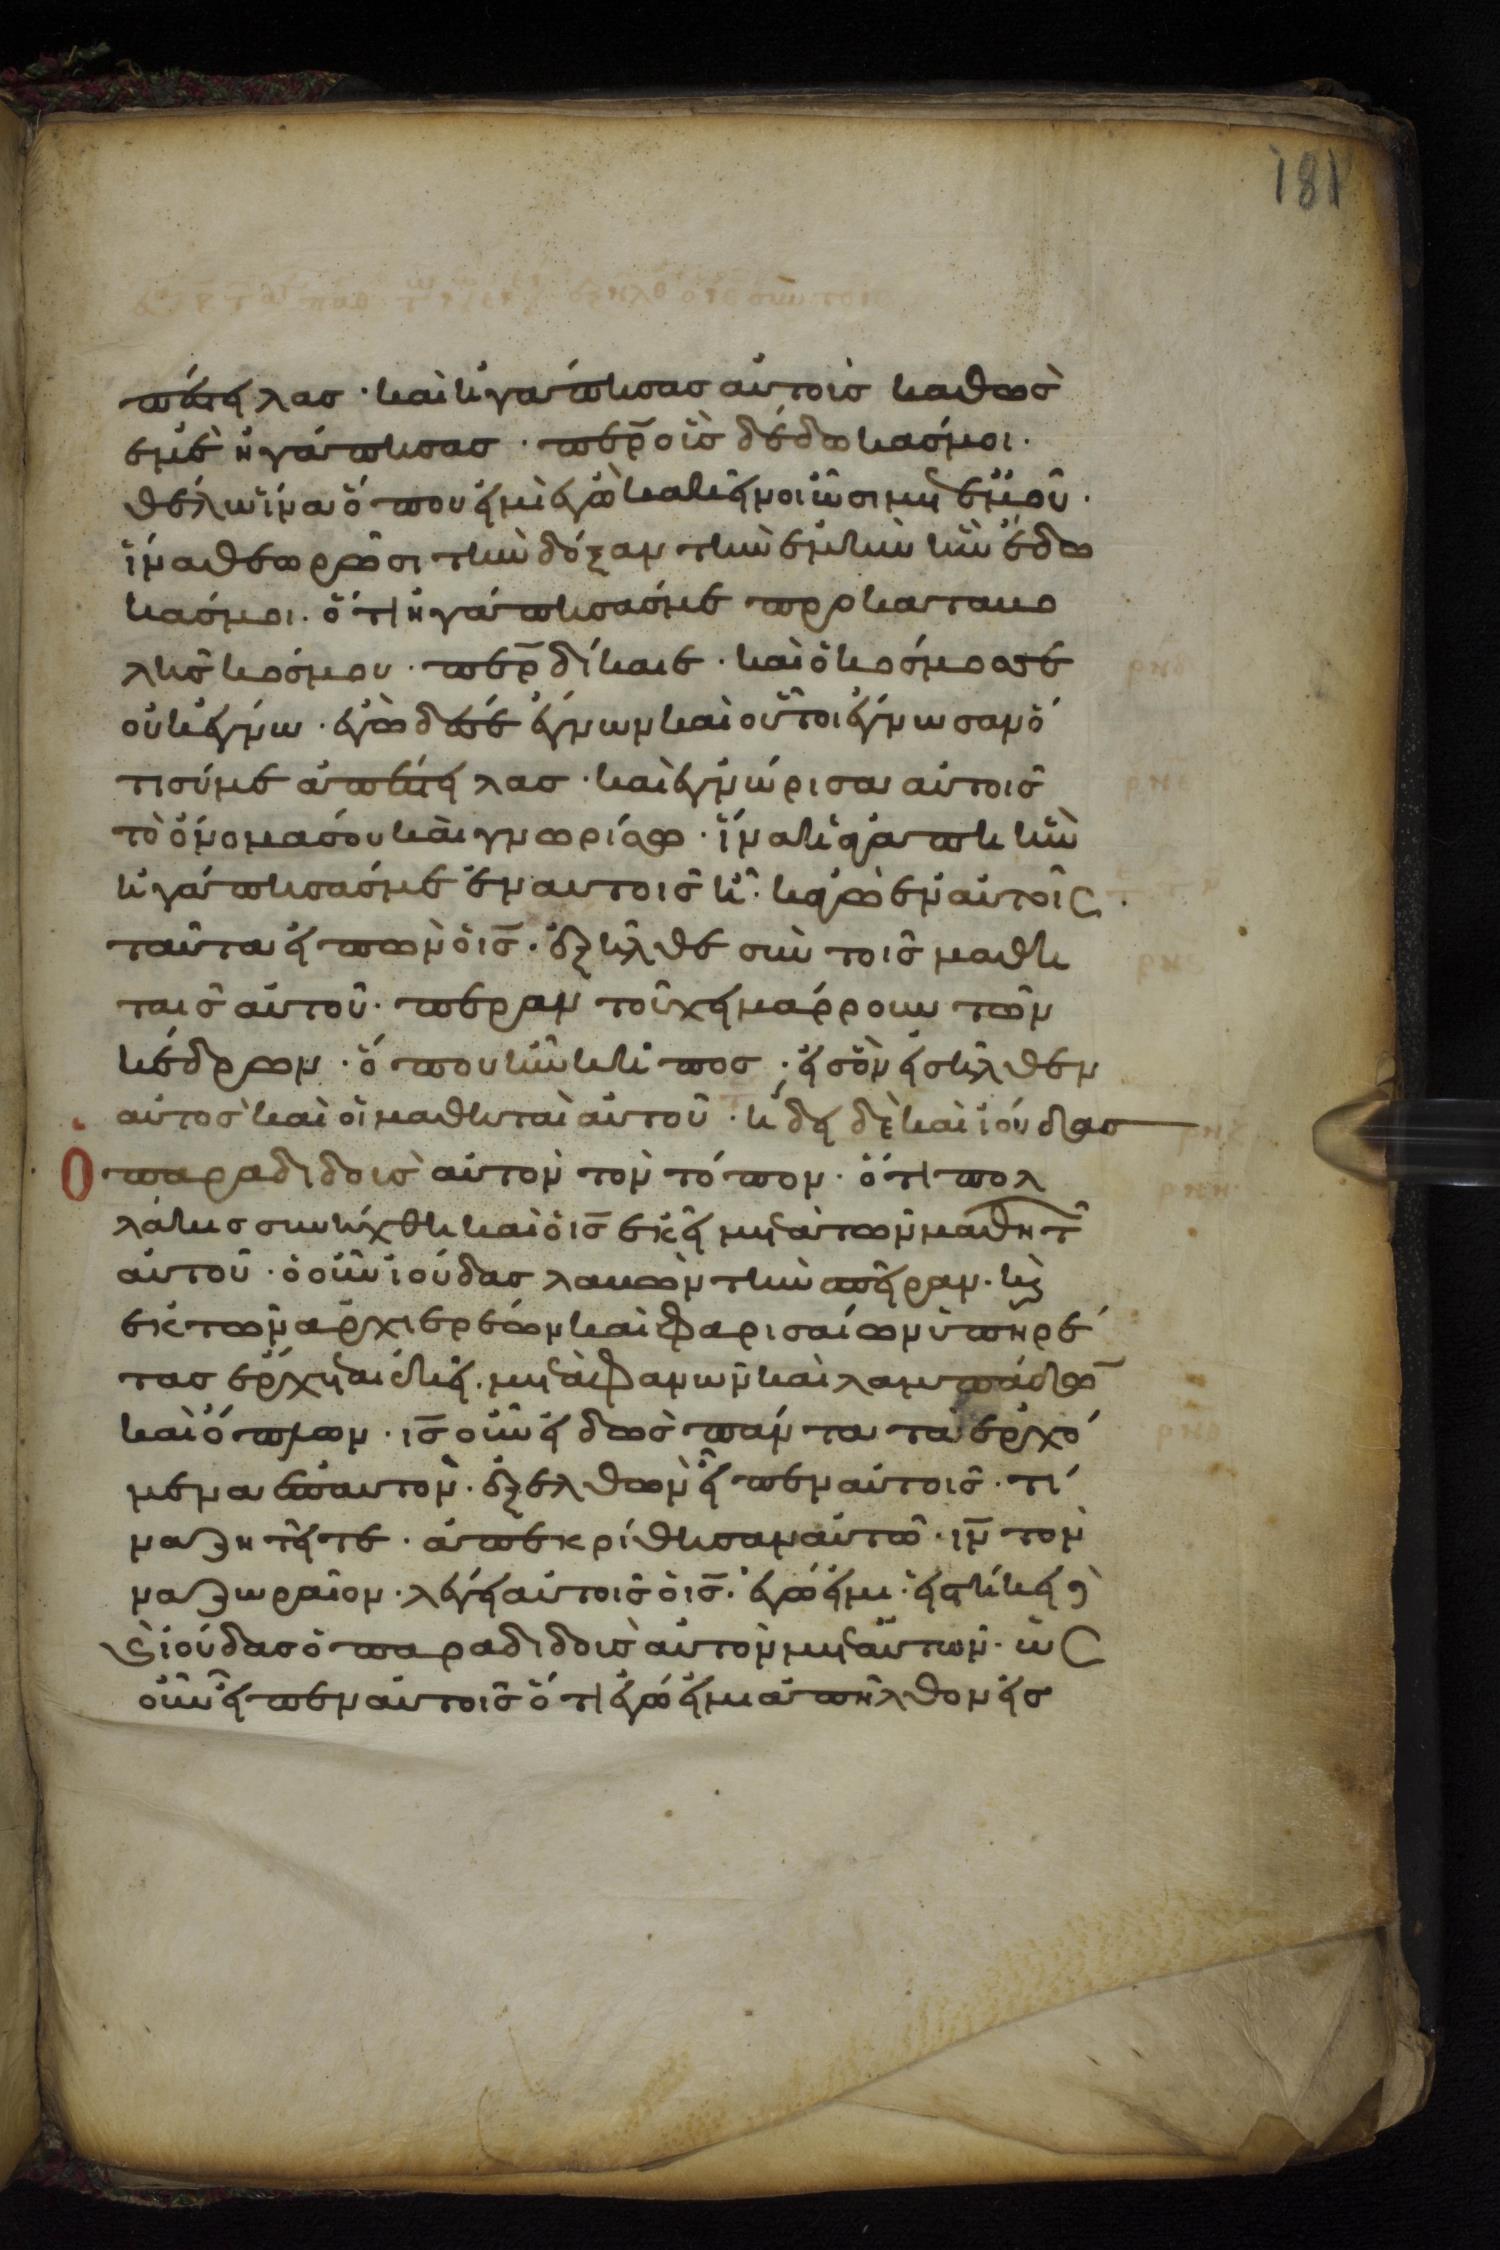 181
πέστειλας · καὶ ἠγάπησας αὐτοὺς καθὼς
ἐμὲ ἠγάπησας · πε̄ρ οὓς δέδωκάς μοι ·
θέλω ἵνα ὅπου εἰμὶ ἐγὼ κακεῖνοι ὦσι μετ ἐμοῦ ·
ἵνα θεωρῶσι τὴν δόξαν τὴν ἐμὴν ἣν ἔδω
κάς μοι · ὅτι ἠγάπησάς με προ καταβο
λῆς κόσμου · πε̄ρ δίκαιε · καὶ ὁ κόσμος σε
οὐκ ἔγνω · ἐγὼ δέ σε ἔγνων καὶ οὗτοι ἔγνωσαν ὅ
τι σύ με ἀπέστειλας · καὶ ἐγνώρισα αὐτοῖς
τὸ ὄνομά σου καὶ γνωρίσω · ἵνα ἡ ἀγάπη ἣν
ἠγάπησάς με ἐν αυτοῖς ᾖ · κἀγὼ ἐν αὐτοῖς ·
ταῦτα εἰπὼν ὁ ις̄ · ἐξῆλθε σὺν τοῖς μαθη
ταῖς αὐτοῦ · πέραν τοῦ χειμάρρου τῶν
κέδρων · ὅπου ἦν κῆπος · εἰς ὃν εἰσῆλθεν
αὐτὸς καὶ οἱ μαθηταὶ αὐτοῦ · ἤδει δὲ καὶ ἰούδας
Ο παραδιδοὺς αὐτὸν τὸν τόπον · ὅτι πολ
λάκις συνήχθη καὶ ὁ ις̄ ἐκεῖ μετὰ τῶν μαθητ
αὐτοῦ · ὁ οὖν ἰούδας λαβὼν τὴν σπεῖραν · κ
ἐκ τῶν ἀρχιερέων καὶ φαρισαίων ὑπηρέ
τας ἔρχεται ἐκεῖ · μετὰ φανῶν καὶ λαμπάδω̄
καὶ ὅπλων · ις̄ οὖν εἰδὼς πάντα τὰ ἐρχό
μενα ἐπ αυτὸν · ἐξελθὼν εἶπεν αὐτοῖς · τί
να ζητεῖτε · ἀπεκρίθησαν αὐτῶ · ιν̄ τὸν
ναζωραῖον · λέγει αὐτοῖς ὁ ις̄ · ἐγώ εἰμι · εἱστήκει
δὲ ἰούδας ὁ παραδιδοὺς αὐτὸν μετ αὐτῶν · ὡς
οὖν εἶπεν αὐτοῖς ὅτι ἐγώ εἰμι ἀπῆλθον εἰς